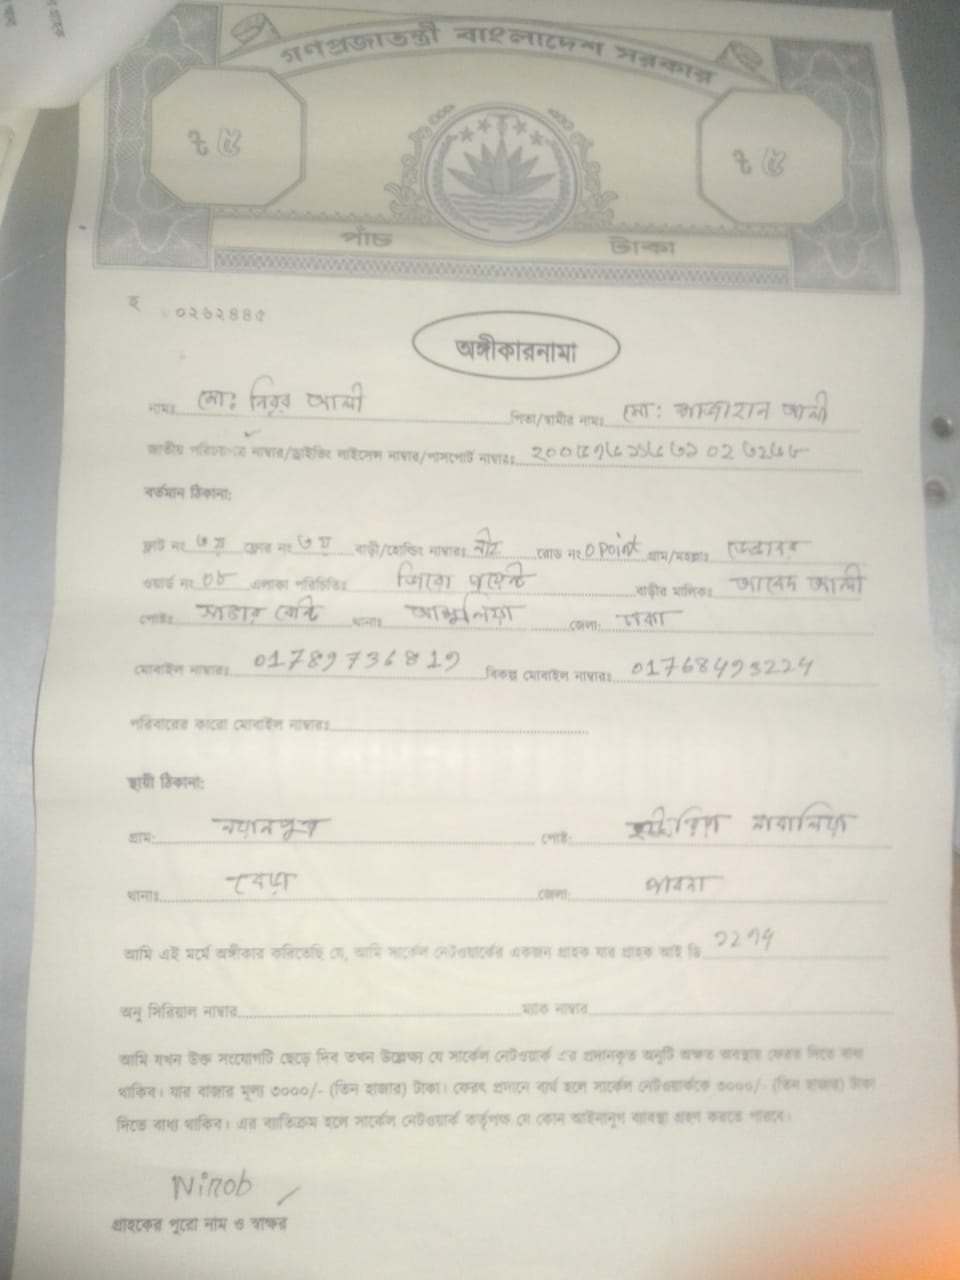 গণপ্রজাতন্ত্রী বাংলাদেশ সরকার
৳ ৫ ৳ ৫
পাঁচ টাকা
০২৬২৪৪৫
অঙ্গীকারনামা
নামঃ মো: নিরব আলী পিতা/স্বামীর নামঃ মো: আলী
জাতীয় পরিচয়পত্র নাম্বার/ড্রাইভিং লাইসেন্স নাম্বার/পাসপোর্ট নাম্বারঃ
বর্তমান ঠিকানা:
ফ্লাট নং ৩য় ফ্লোর নং ৩য় বাড়ী/হোল্ডিং নাম্বারঃ রোড নং 0 Point গ্রাম/মহল্লাঃ
ওয়ার্ড নং ০৮ এলাকা পরিচিতিঃ জিরো পয়েন্ট বাড়ীর মালিকঃ জাবেদ আলী
পোষ্টঃ থানাঃ আশুলিয়া জেলা: ঢাকা
মোবাইল নাম্বারঃ 01789736819 বিকল্প মোবাইল নাম্বারঃ 01768493224
পরিবারের কারো মোবাইল নাম্বারঃ
স্থায়ী ঠিকানা:
গ্রাম: নয়ানপুর পোষ্ট:
থানাঃ বেড়া জেলা: পাবনা
আমি এই মর্মে অঙ্গীকার করিতেছি যে, আমি সার্কেল নেটওয়ার্কের একজন গ্রাহক যার গ্রাহক আই ডি
অনু সিরিয়াল নাম্বার ম্যাক নাম্বার
আমি যখন উক্ত সংযোগটি ছেড়ে দিব তখন উল্লেখ্য যে সার্কেল নেটওয়ার্ক এর প্রদানকৃত অনুটি অক্ষত অবস্থায় ফেরত দিতে বাধ্য
থাকিব। যার বাজার মূল্য ৩০০০/- (তিন হাজার) টাকা। ফেরৎ প্রদানে ব্যর্থ হলে সার্কেল নেটওয়ার্ককে ৩০০০/- (তিন হাজার) টাকা
দিতে বাধ্য থাকিব। এর ব্যতিক্রম হলে সার্কেল নেটওয়ার্ক কর্তৃপক্ষ যে কোন আইনানুগ ব্যবস্থা গ্রহন করতে পারবে।
Nirob
গ্রাহকের পুরো নাম ও স্বাক্ষর